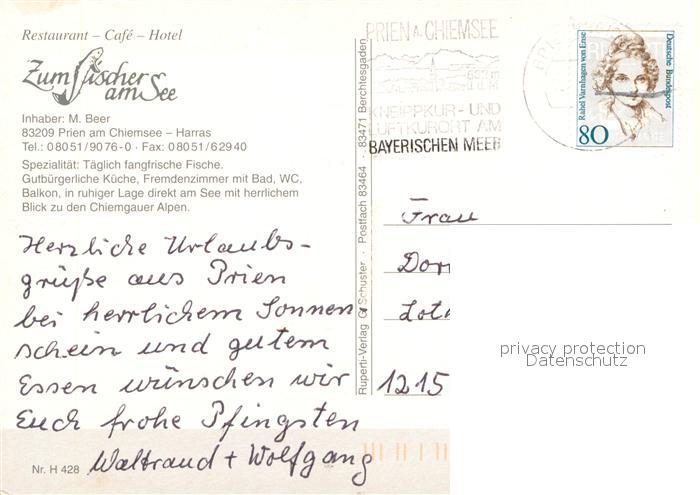 Restaurant – Café – Hotel
Zum Fischer
am See
Inhaber: M. Beer
83209 Prien am Chiemsee – Harras
Tel.: 0 80 51 / 90 76 - 0 · Fax: 0 80 51 / 6 29 40
Spezialität: Täglich fangfrische Fische.
Gutbürgerliche Küche, Fremdenzimmer mit Bad, WC,
Balkon, in ruhiger Lage direkt am See mit herrlichem
Blick zu den Chiemgauer Alpen.
Herzliche Urlaubs-
grüße aus Prien
bei herrlichem Sonnen
schein und gutem
Essen wünschen wir
Euch frohe Pfingsten
Waltraud + Wolfgang
Nr. H 428
Ruperti-Verlag G. Schuster · Postfach 83464 · 83471 Berchtesgaden
PRIEN A. CHIEMSEE
KNEIPPKUR- UND
LUFTKURORT AM
BAYERISCHEN MEER
Rahel Varnhagen von Ense
Deutsche Bundespost
80
Frau
Dor
1215
privacy protection
Datenschutz